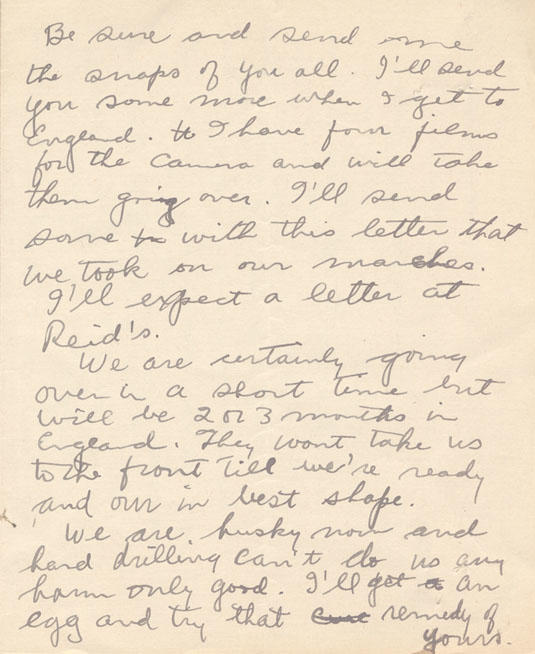 Be sure and send me
the snaps of you all. I'll send
you some more when I get to
England. I have four films
for the camera and will take
them going over. I'll send
some with this letter that
we took on our marches.
I'll expect a letter at
Reid's.
We are certainly going
over in a short time but
will be 2 or 3 months in
England. They wont take us
to the front till we're ready
and our in best shape.
We are husky now and
hard drilling can't do us any
harm only good. I'll get an
egg and try that remedy of
yours.